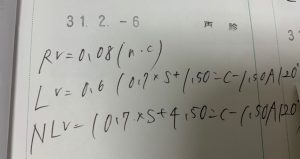 31.2.-6 両眼
RV=0.08(n.c)
LV=0.6(0.7×S+1.50=C-1.50A120°
NLV=(0.7×S+4.50=C-1.50A120°